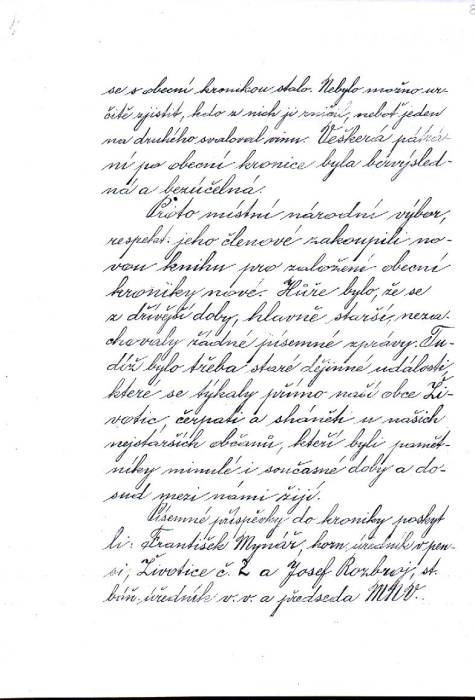 se s obecní kronikou stalo. Nebylo možno ur-
čitě zjistit, kdo z nich ji zničil, neboť jeden
na druhého svaloval vinu. Veškerá pátrá-
ní po obecní kronice byla bezvýsled-
ná a bezúčelná.
Proto místní národní výbor,
respekt. jeho členové zakoupili no-
vou knihu pro založení obecní
kroniky nové. Hůře bylo, že se
z dřívější doby, hlavně starší, neza-
chovaly řádné písemné zprávy. Tu-
díž bylo třeba staré dějinné události,
které se týkaly přímo naší obce Ži-
votic, čerpati a sháněti u našich
nejstarších občanů, kteří byli pamět-
níky minulé i současné doby a do-
sud mezi námi žijí.
Písemné příspěvky do kroniky poskyt
li: František Mynář, horn. úředník v pen-
si, Životice č. 2 a Josef Rozbroj, st.
báň. úředník v. v. a předseda MNV.